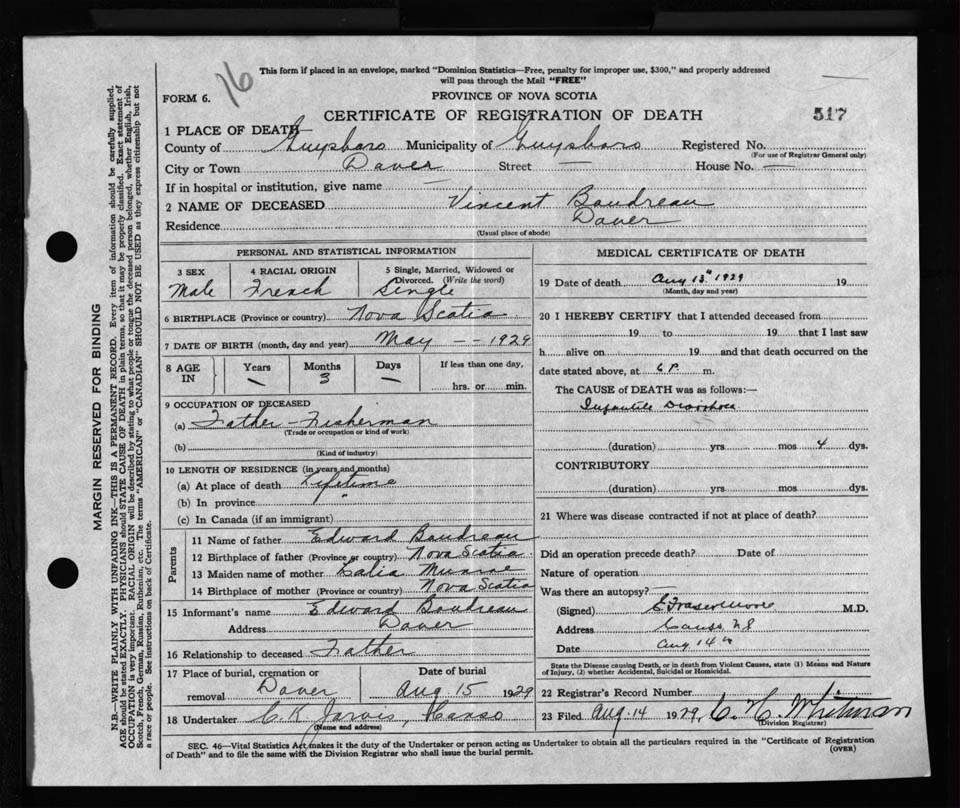 This form if placed in an envelope, marked "Dominion Statistics—Free, penalty for improper use, $300," and properly addressed
will pass through the Mail "FREE"
16
FORM 6.
PROVINCE OF NOVA SCOTIA
CERTIFICATE OF REGISTRATION OF DEATH
517
1 PLACE OF DEATH
County of Guysboro Municipality of Guysboro Registered No.
(For use of Registrar General only)
City or Town Dover Street — House No. —
If in hospital or institution, give name —
2 NAME OF DECEASED Vincent Boudreau
Residence Dover
(Usual place of abode)
PERSONAL AND STATISTICAL INFORMATION
3 SEX 4 RACIAL ORIGIN 5 Single, Married, Widowed or
Divorced. (Write the word)
Male French Single
6 BIRTHPLACE (Province or country) Nova Scotia
7 DATE OF BIRTH (month, day and year) May — — 1929
8 AGE IN Years Months Days If less than one day,
— 3 — hrs. or min.
9 OCCUPATION OF DECEASED
(a) Father - Fisherman
(Trade or occupation or kind of work)
(b)
(Kind of industry)
10 LENGTH OF RESIDENCE (in years and months)
(a) At place of death Lifetime
(b) In province "
(c) In Canada (if an immigrant)
Parents
11 Name of father Edward Boudreau
12 Birthplace of father (Province or country) Nova Scotia
13 Maiden name of mother Munroe
14 Birthplace of mother (Province or country) Nova Scotia
15 Informant's name Edward Boudreau
Address Dover
16 Relationship to deceased Father
17 Place of burial, cremation or Date of burial
removal Dover Aug. 15 1929
18 Undertaker C. K. Jarvis, Canso
(Name and address)
MEDICAL CERTIFICATE OF DEATH
19 Date of death Aug 13th 1929 19
(Month, day and year)
20 I HEREBY CERTIFY that I attended deceased from
19 to 19 that I last saw
h alive on 19 and that death occurred on the
date stated above, at 6 P. m.
The CAUSE of DEATH was as follows:—
Infantile Diarrhoea
(duration) yrs mos 4 dys.
CONTRIBUTORY
(duration) yrs mos dys.
21 Where was disease contracted if not at place of death?
Did an operation precede death? Date of
Nature of operation
Was there an autopsy?
(Signed) C Fraser Moore M.D.
Address Canso N.S
Date Aug 14th
State the Disease causing Death, or in death from Violent Causes, state (1) Means and Nature
of Injury, (2) whether Accidental, Suicidal or Homicidal.
22 Registrar's Record Number
23 Filed Aug. 14 1929, C. H. Whitman
(Division Registrar)
SEC. 46—Vital Statistics Act makes it the duty of the Undertaker or person acting as Undertaker to obtain all the particulars required in the "Certificate of Registration
of Death" and to file the same with the Division Registrar who shall issue the burial permit.
(OVER)
MARGIN RESERVED FOR BINDING
N.B.—WRITE PLAINLY WITH UNFADING INK—THIS IS A PERMANENT RECORD. Every item of information should be carefully supplied.
AGE should be stated EXACTLY. PHYSICIANS should STATE CAUSE OF DEATH in plain terms, so that it may be properly classified. Exact statement of
OCCUPATION is very important. RACIAL ORIGIN will be described by stating to what people or tongue the deceased person belonged, whether English, Irish,
Scotch, French, German, Russian, Ruthenian, etc. The terms "AMERICAN" or "CANADIAN" SHOULD NOT BE USED as they express citizenship but not
a race or people. See instructions on back of Certificate.